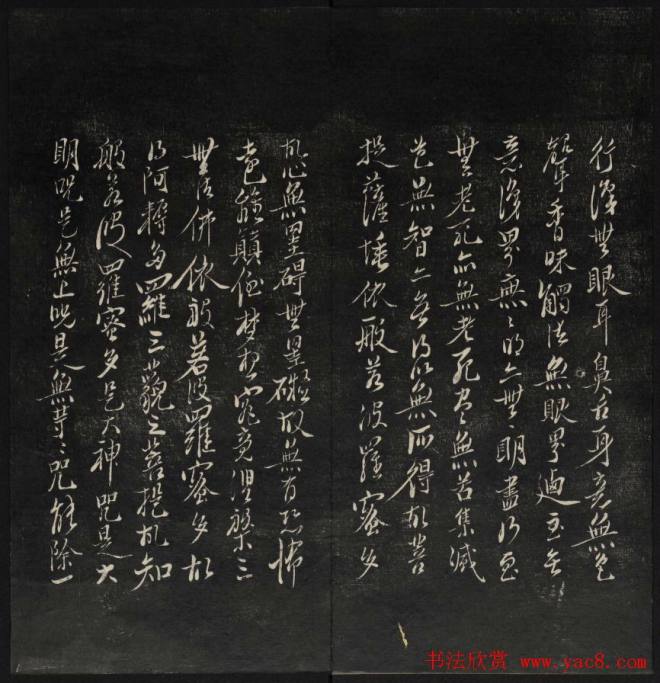 行識無眼耳鼻舌身意無色
聲香味觸法無眼界迺至無
意識界無無明亦無無明盡乃至
無老死亦無老死盡無苦集滅
道無智亦無得以無所得故菩
提薩埵依般若波羅蜜多
故心無罣碍無罣礙故無有恐怖
遠離顛倒夢想究竟涅槃三
世諸佛依般若波羅蜜多故
得阿耨多羅三藐三菩提故知
般若波羅蜜多是大神咒是大
明咒是無上咒是無等等咒能除一
书法欣赏 www.yac8.com